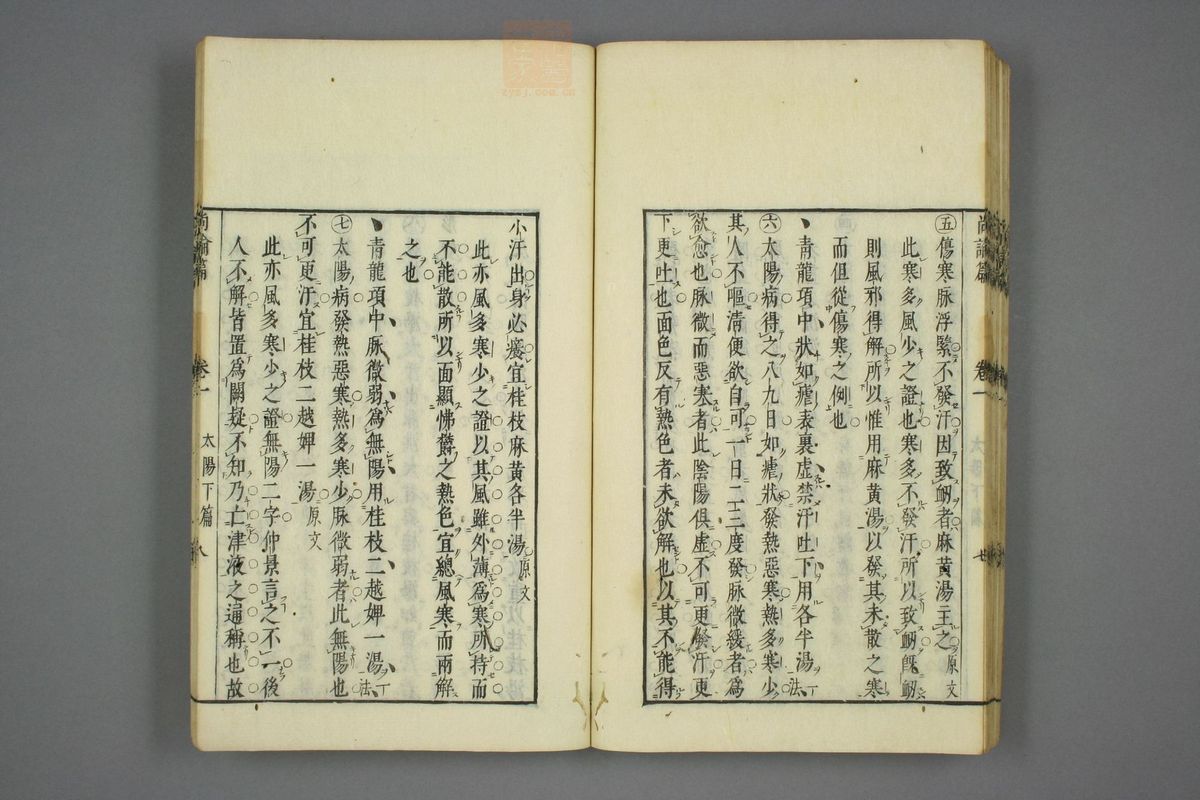 尚論篇 卷一
㊄傷寒脉浮緊不發汗因致衂者麻黄湯主之原文
此寒多風少之證也寒多不發汗所以致衂旣衂
則風邪得解所以惟用麻黄湯以發其未散之寒
而但從傷寒之例也
青龍項中狀如瘧表裏虛禁汗吐下用各半湯一法
㊅太陽病得之八九日如瘧狀發熱惡寒熱多寒少
其人不嘔淸便欲自可一日二三度發脉微緩者爲
欲愈也脉微而惡寒者此陰陽俱虛不可更發汗更
下更吐也面色反有熱色者未欲解也以其不能得
小汗出身必癢宜桂枝麻黄各半湯原文
此亦風多寒少之證以其風雖外薄爲寒所持而
不能散所以面顯怫欝之熱色宜總風寒而兩解
之也
青龍項中脉微弱爲無陽用桂枝二越婢一湯一法
㊆太陽病發熱惡寒熱多寒少脉微弱者此無陽也
不可更汗宜桂枝二越婢一湯原文
此亦風多寒少之證無陽二字仲景言之不一後
人不解皆置爲闕疑不知乃亡津液之通稱也故
尚論篇 卷一 太陽下篇 八
zysj.com.cn